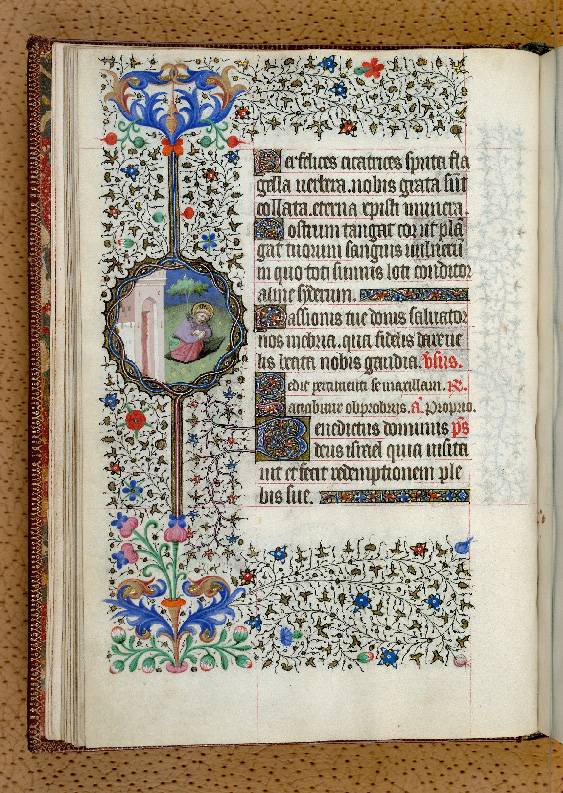 Per felices cicatrices sputa fla
gella verbera. nobis grata sint
collata. eterna cristi munera.
Nostrum tangat cor ut pla
gat tuorum sanguis vulneru
in quo toti simus loti conditor
alme syderum.
Passionis tue donis salvator
nos inebria. qua fidelis dare ve
lis beata nobis gaudia. vsus.
Dedit percutienti se maxillam. R.
Saturabitur obprobriis. a. Proprio.
Benedictus dominus ps
deus israel quia visita
uit et fecit redemptionem ple
bis sue.